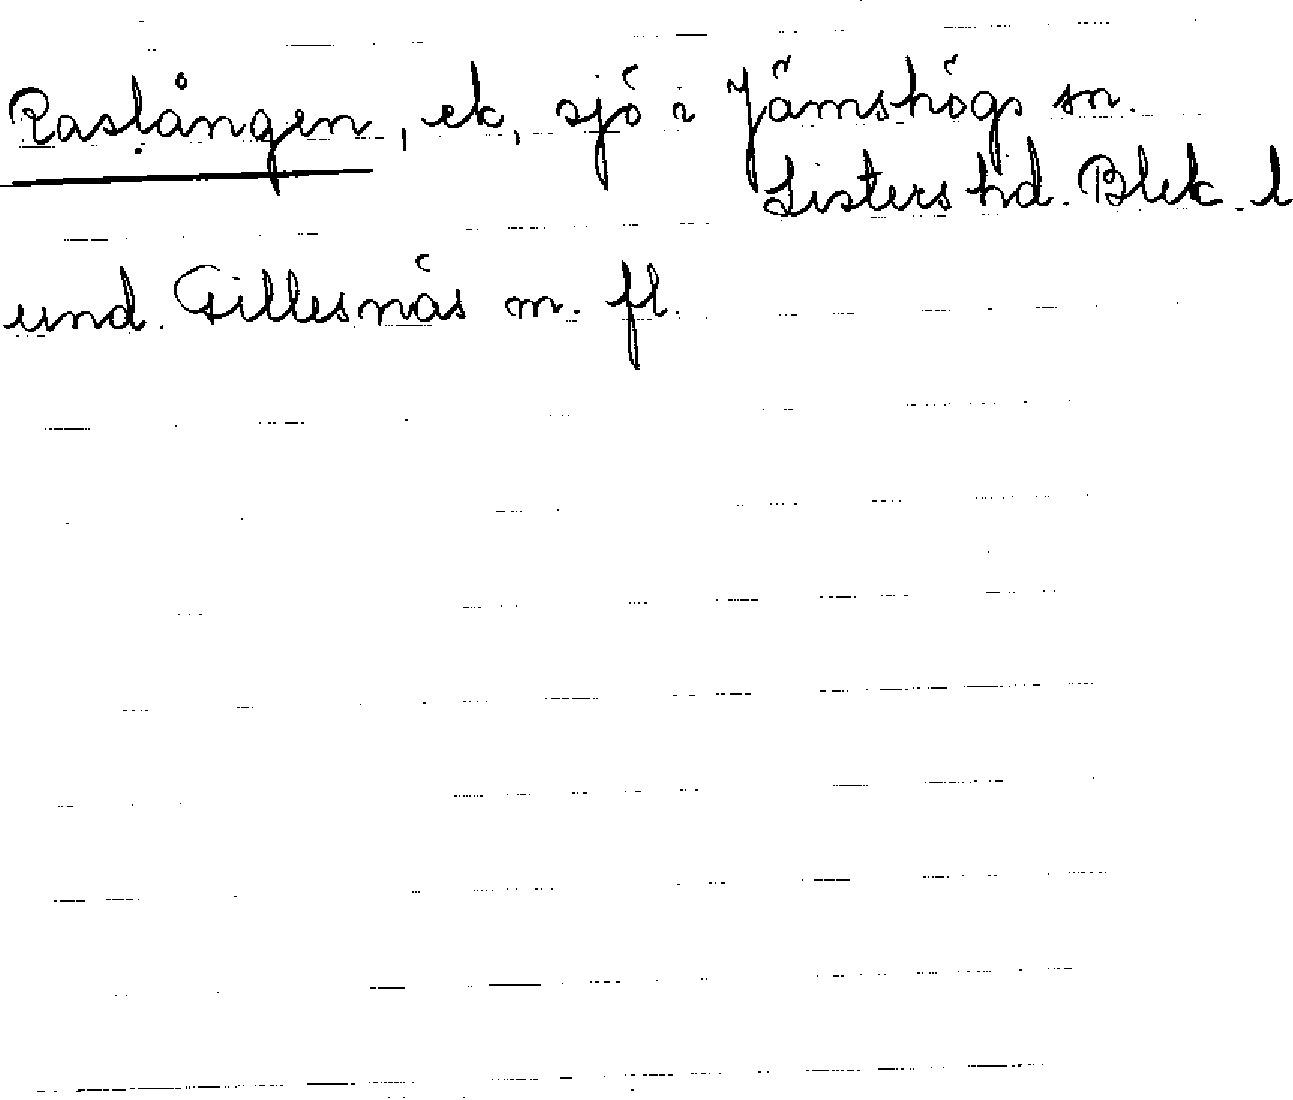 Raslången, ek, sjö i Jämshögs sn.
Listers hd. Blek. l
und. Gillesnäs m. fl.